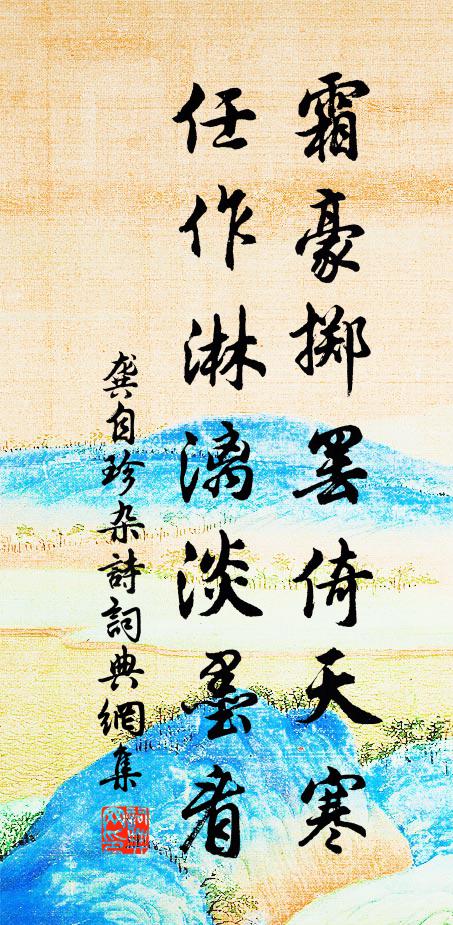 霜豪掷罢倚天寒
任作淋漓淡墨看
龔自珍杂詩詞典網集